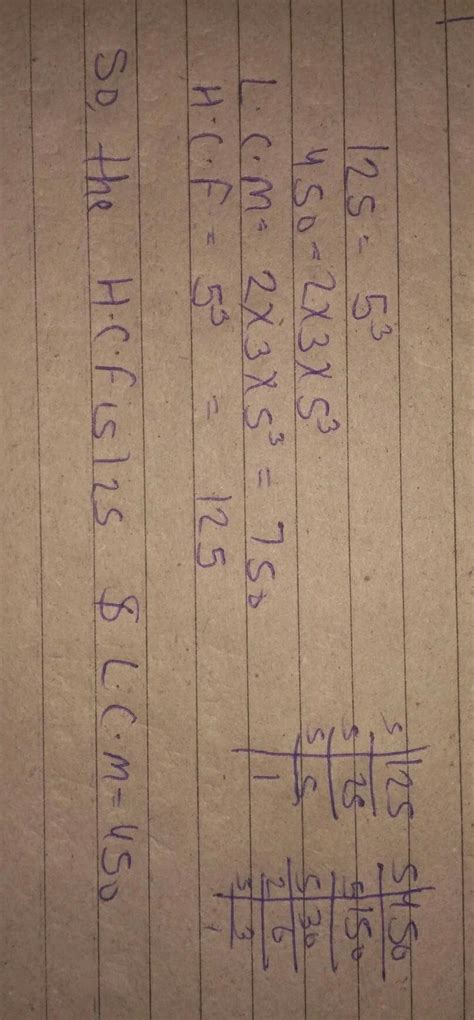 125 = 5³
450 = 2×3×5³
L.C.M = 2×3×5³ = 750
H.C.F = 5³ = 125
So, the H.C.F is 125 & L.C.M = 450
5 125
5 25
5 5
1
5 450
5 150
5 30
2 6
3 3
1